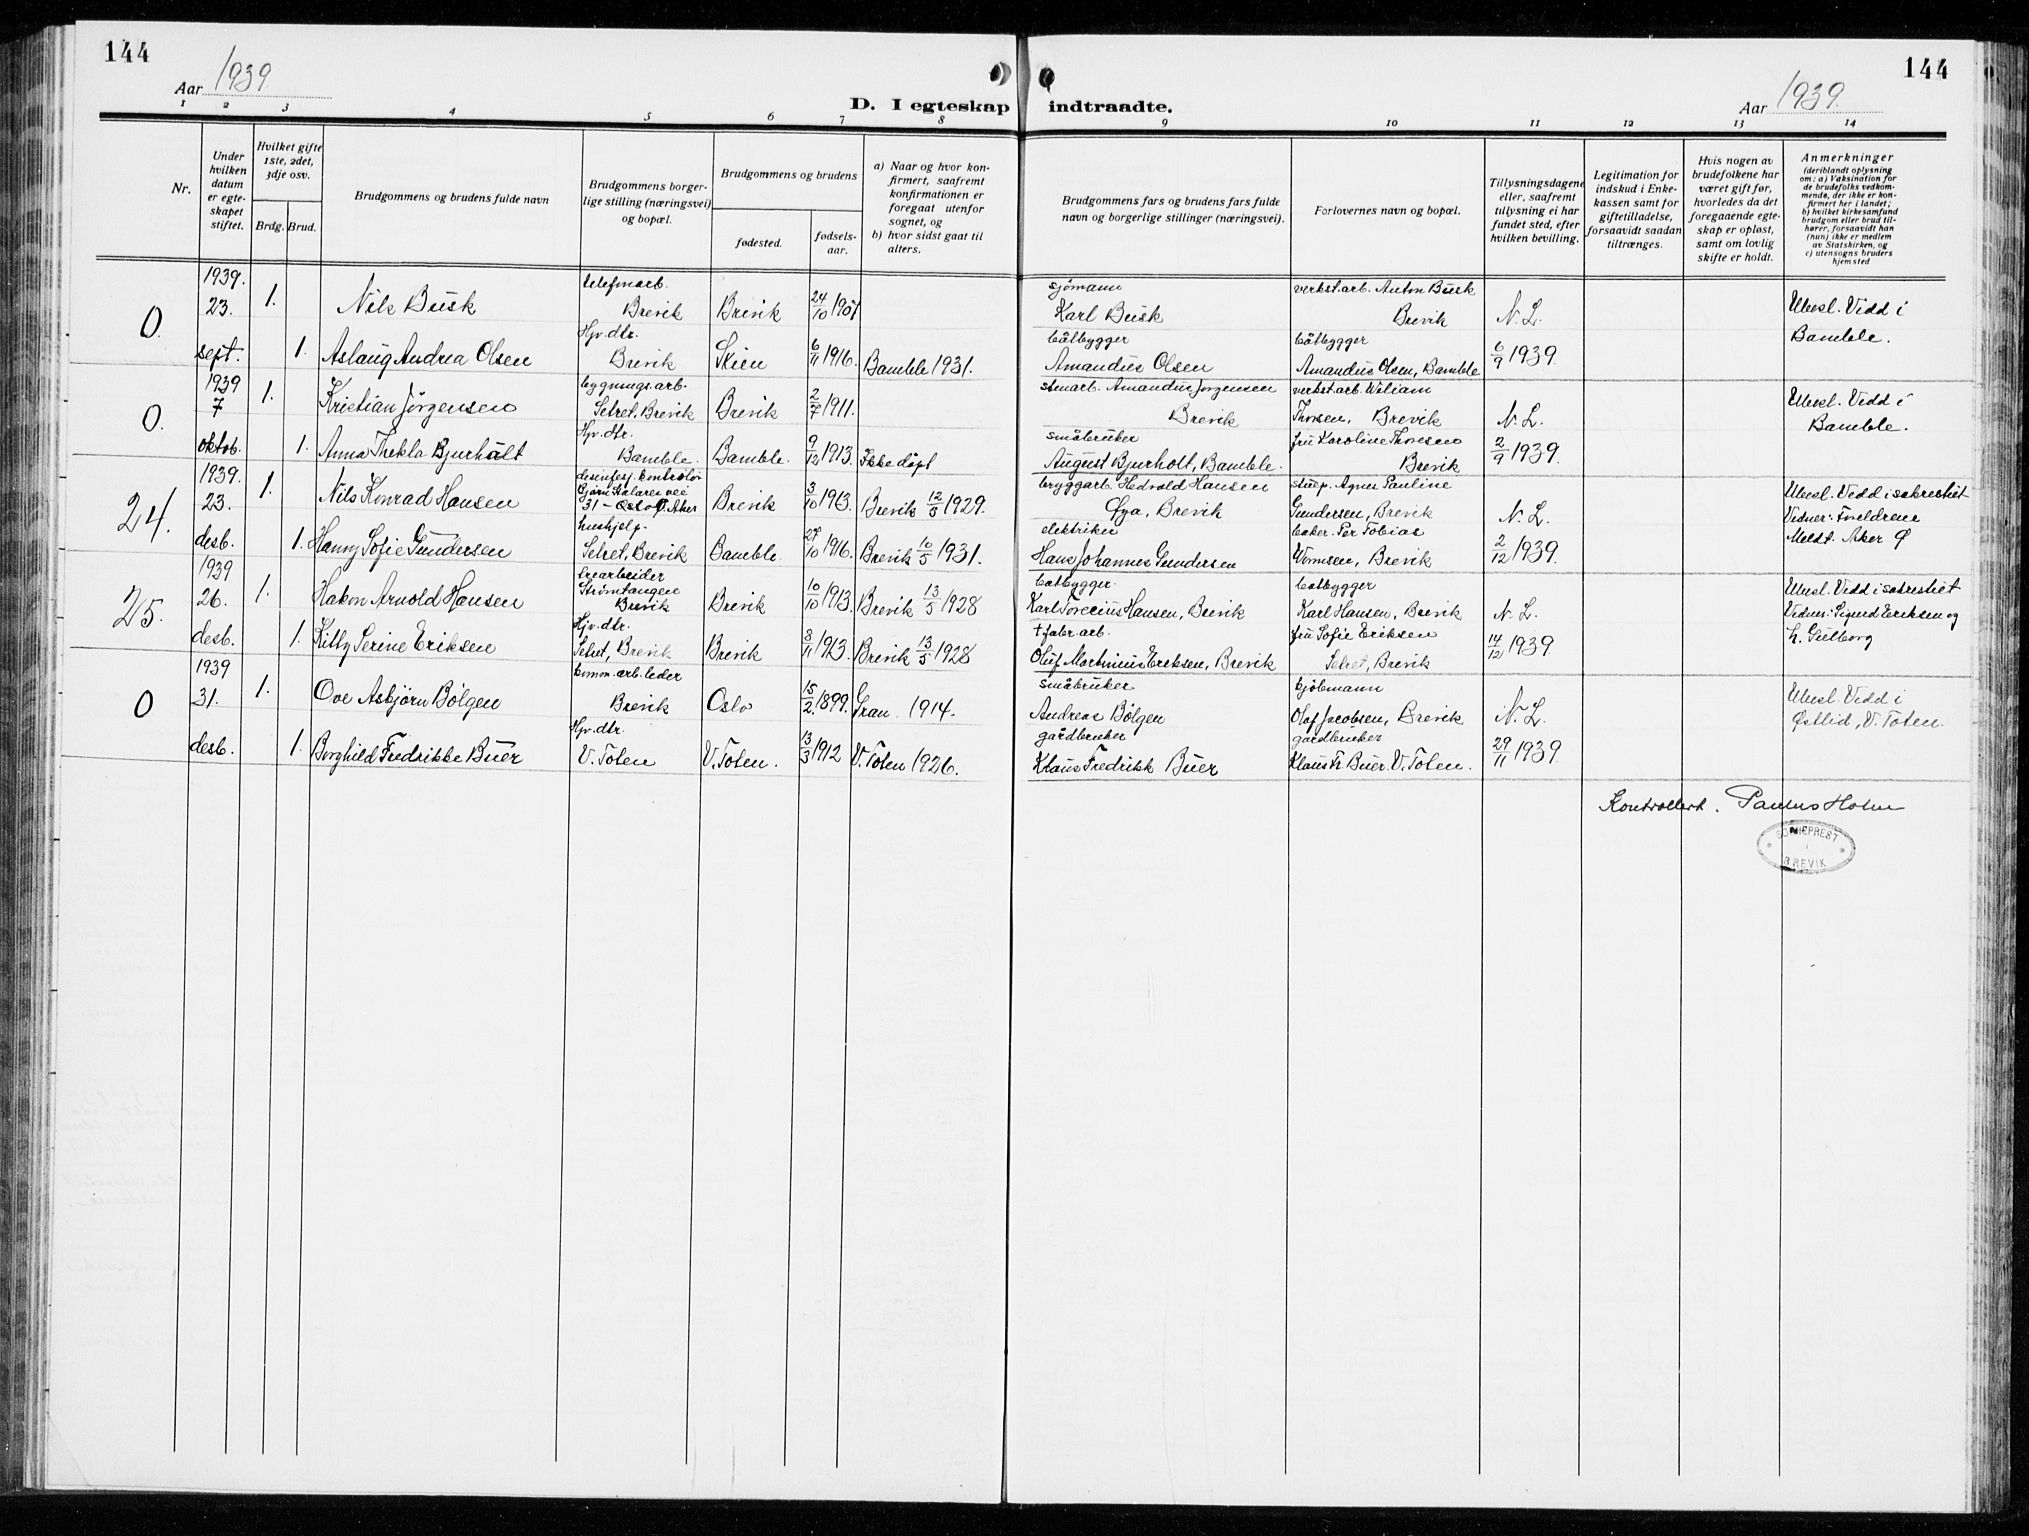 144
144
Aar 1939.
Aar 1939.
D. I egteskap indtraadte.
1 2 3 4 5 6 7 8 9 10 11 12 13 14
Nr.
Under hvilken datum er egteskapet stiftet.
Hvilket gifte 1ste, 2det, 3dje osv.
Brdg. Brud.
Brudgommens og brudens fulde navn
Brudgommens borgerlige stilling (næringsvei) og bopæl.
Brudgommens og brudens
fødested.
fødselsaar.
a) Naar og hvor konfirmert, saafremt konfirmationen er foregaat utenfor sognet, og
b) hvor sidst gaat til alters.
Brudgommens fars og brudens fars fulde navn og borgerlige stillinger (næringsvei).
Forlovernes navn og bopæl.
Tillysningsdagene eller, saafremt tillysning ei har fundet sted, efter hvilken bevilling.
Legitimation for indskud i Enkekassen samt for giftetilladelse, forsaavidt saadan tiltrænges.
Hvis nogen av brudefolkene har været gift før, hvorledes da det foregaaende egteskap er opløst, samt om lovlig skifte er holdt.
Anmerkninger (deriblandt oplysning om: a) Vaksination for de brudefolks vedkommende, der ikke er konfirmert her i landet; b) hvilket kirkesamfund brudgom eller brud tilhører, forsaavidt han (hun) ikke er medlem av Statskirken, og c) utensogns bruders hjemsted
0. 1939. 23. sept.
1. Nils Busk telefonarb. Brevik Brevik 24/10 1907 sjömann Karl Busk verkst.arb. Anton Busk Brevik N. L. Utensl. Vidd i Bamble.
1. Aslaug Andrea Olsen Hjv. dtr. Brevik Skien 6/11 1916. Bamble 1931. båtbygger Amandus Olsen båtbygger Amandus Olsen, Bamble 6/9 1939.
0. 1939 7 oktob.
1. Kristian Jörgensen bygnings.arb. Setret, Brevik Brevik 2/7 1911. Amandus Jorgensen Brevik verkst.arb. Wiliam Thorsen, Brevik N. L. Utensl. Vidd i Bamble.
1. Anna Thekla Bjurhält Hjv. dtr. Bamble. Bamble. 9/12 1913. Ikke døpt småbruker August Bjurholt, Bamble. fru Karoline Thorsen Brevik 2/9 1939.
24. 1939. 23. desb.
1. Nils Konrad Hansen 31 - Oslo Brevik 3/10 1913. Brevik 12/5 1929. bryggarb. Hedvald Hansen Øya, Brevik Agnes Pauline Gundersen, Brevik N. L. Utensl. Vidd i sakrestiet Vidner: Foreldrene Meldt. Aker Ø
1. Hanny Sofie Gundersen hushjelp. Setret, Brevik Bamble. 27/10 1916. Brevik 10/5 1931. elektriker Hans Johannes Gundersen baker. Per Tobias Brevik 2/12 1939.
25. 1939 26. desb.
1. Hakon Arnold Hansen Strømtangen Brevik Brevik 10/10 1913. Brevik 13/5 1928 båtbygger. Hansen, Brevik båtbygger Karl Hansen, Brevik N. L. Utensl. Vidd i sakrestiet Vidner: Sigurd Eriksen og
1. Kitty Serine Eriksen Hjv. dtr. Setret, Brevik Brevik 3/11 1913. Brevik 13/5 1928 † fabr. arb. Oluf Martinius Eriksen, Brevik fru Sofie Eriksen Setret, Brevik 14/12 1939
0 1939 31. desb.
1. Ove Asbjörn Bölgen komm. arb. leder Brevik Oslo 15/2 1899. Gran 1914. Småbruker Andreas Bölgen kjöbmann Olaf Jacobsen, Brevik N. L. Utensl. Vidd i Østlid, V. Toten.
1. Borghild Fredrikke Buer Hjv. dtr. V. Toten V. Toten. 13/3 1912 V. Toten 1926. gårdbruker Klaus Fredrikk Buer gårdbruker Klaus Fr. Buer. V. Toten. 29/11 1939.
Kontrollert. Paulus Holm
SOGNEPREST I BREVIK